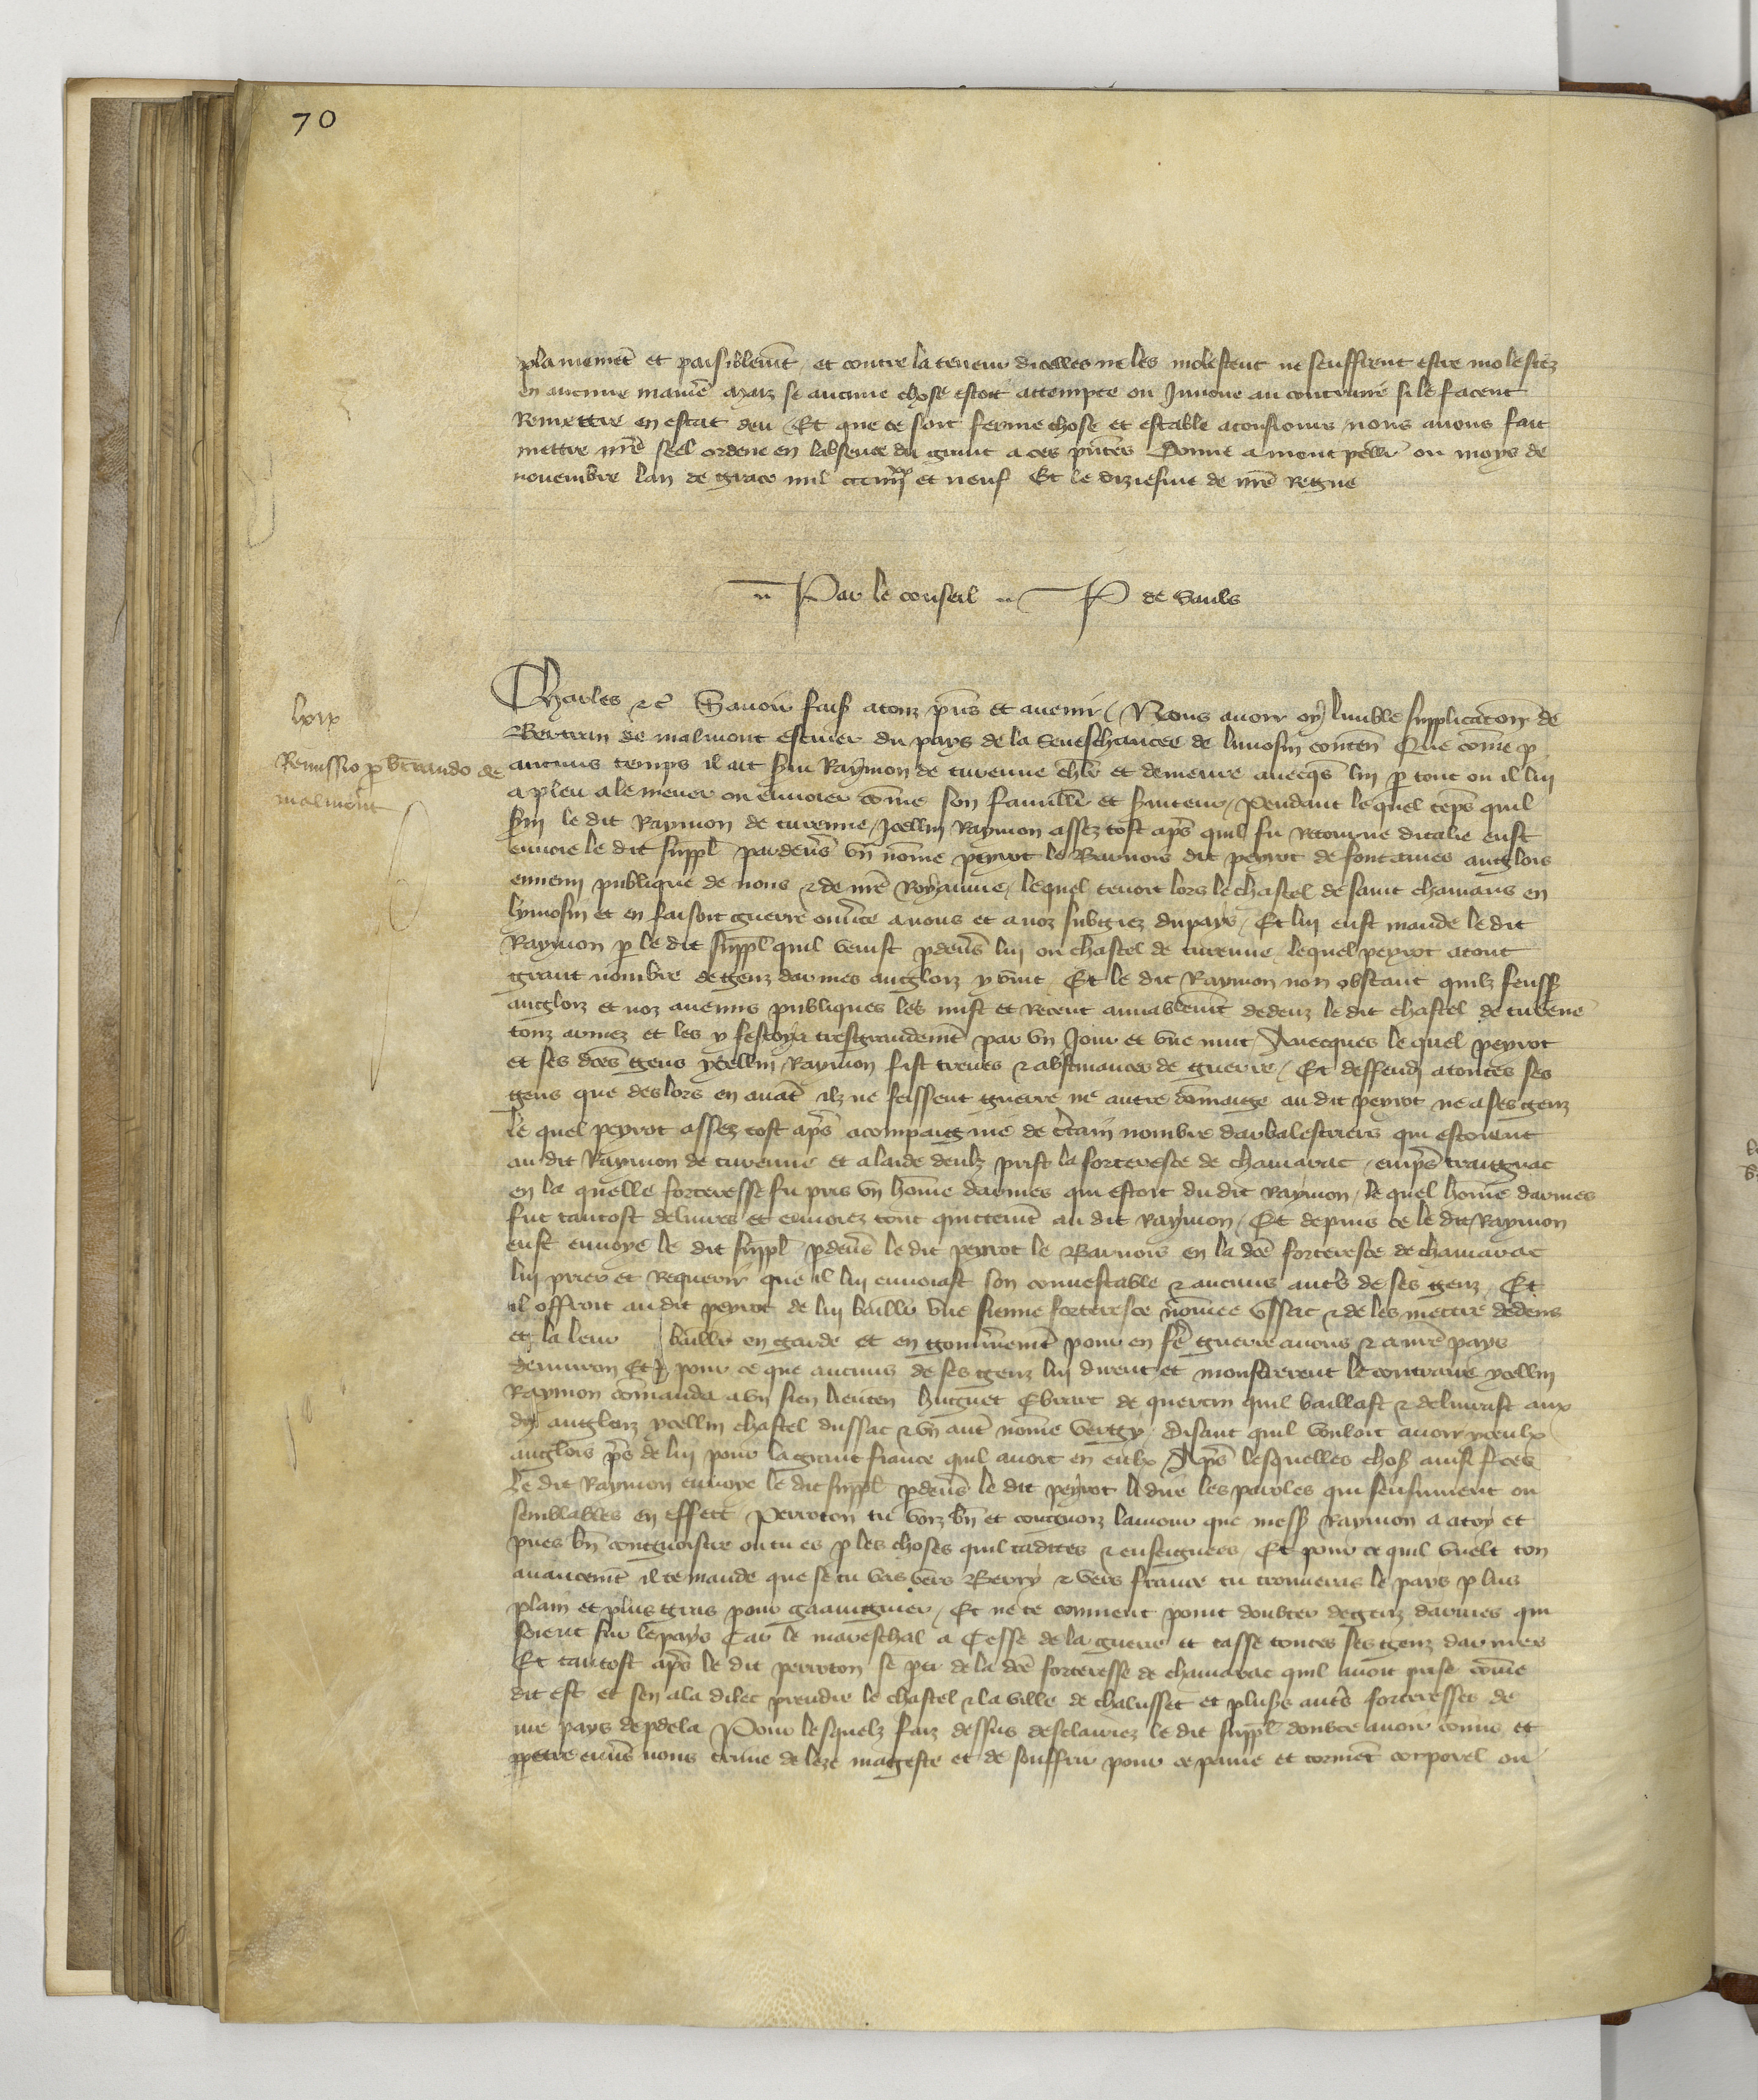 70
plainement et paisiblemt et contre la teneur dicelles ne les molestent ne seuffrent estre molestez
en aucune manie mais se aucune chose estoit attempte ou Innove au contraire si le facent
Remettre en estat deu Et que ce soit ferme chose et estable a tousiours nous avons fait
mettre nre seel ordene en labsence du grant a ces pntes Donne a montpellr ou moys de
novembre lan de grace mil ccc iiijxx et neuf Et le diziesme de nre Regne
Par le conseil P de Vauls
lxix
Remissio p btrando de
malmont
Charles &c Savoir faiss a touz pns et avenir Nous avoir oy lumble supplicacion de
Bertran de malmont escuier du pays de la Seneschaucee de limosin conten Que come p
aucuns temps il ait svi Raymon de turenne chlr et demeure avecqs lui p tout ou il lui
a pleu a le mener ou envoier come son familir et sviteur Pendant le quel teps quil
svi le dit Raymon de turenne Icellui Raymon assez tost aps quil fu retourne ditalie eust
envoie le dit suppl pardevs vn nome peyrot le Barnois dit peyrot de fontaines anglois
ennemi publique de nous & de nre Royaume lequel tenoit lors le chastel de saint chamans en
lymosin et en faisoit guerre ouvte a nous et a noz subgiez du pays Et lui eust mande le dit
Raymon p le dit suppl quil venist pdevs lui ou chastel de turenne lequel peyrot atout
grant nombre de genz darmes angloiz y vint Et le dit Raymon non obstant quilz feuss
angloiz et noz anemis publiques les mist et recut amiablemt dedenz le dit chastel de turene
touz armez et les y festoya tresgrandemt par vn Jour et vne nuit Avecques le quel peyrot
et ses des gens ycellui Raymon fist treves & abstinances de guerre Et deffendi a toutes ses
gens que deslors en avat ilz ne feissent guerre ne autre domaige au dit peyrot ne a ses genz
le quel peyrot assez tost aps acompaignie de ctain nombre darbalestriers qui estoient
au dit Raymon de turenne et a laide deulz prist la forteresce de chamarac emps traignac
en la quelle forteresse fu pris vn home darmes qui estoit du dit Raymon le quel home darmes
fut tantost delivres et envoiez tout quittemt au dit Raymon Et depuis ce le dit Raymon
eust envoye le dit suppl pdevs le dit peyrot le Barnois en la de forteresce de chamarac
lui prier et Requerir que il lui envoiast son connestable & aucuns auts de ses genz Et
il offroit au dit peyrot de lui baillr vne sienne forteresce nomee vssac & de les mettre dedens
et la leur baillr en garde et en gouvnemt pour en fe guerre a nous & a nre pays
denviron Et pour ce que aucuns de ses genz lui dirent et monstrerent le contraire ycellui
Raymon comanda a vn sien lieuten huguet Ebrart de quercin quil baillast & delivrast aux
diz angloiz ycellui chastel dussac & vn aut nome vertgy disant quil vouloit avoir yceulx
anglois ps de lui pour la grant fiance quil avoit en eulx Aps lesquelles choss ainsi fces
le dit Raymon envoye le dit suppl pdevs le dit peyrot li dire les paroles qui sensuivent ou
semblables en effett Perroton tu voiz bn et congnoiz lamour que mess Raymon a a toy et
pues bn congnoistre ou tu es p les choses quil ta dites & enseignees Et pour ce quil vuelt ton
avancemt il te mande que se tu vas vers Berry & vers france tu trouveras le pays plus
plain et plus gras pour gaaingnier Et ne te convient point doubter de genz darmes qui
soient sur le pays Car le mareschal a Cesse de la guerre et casse toutes ses genz darmes
Et tantost aps le dit perroton se pti de la de forteresse de chamarac quil avoit prise come
dit est et sen ala dilec prendre le chastel & la ville de chalusset et plusrs auts forteresses de
nre pays de pdela Pour lesquelz faiz dessus desclairez le dit suppl doubte avoir comis et
ppetre envs nous crime de leze mageste et de souffrir pour ce paine et tormet corporel ou